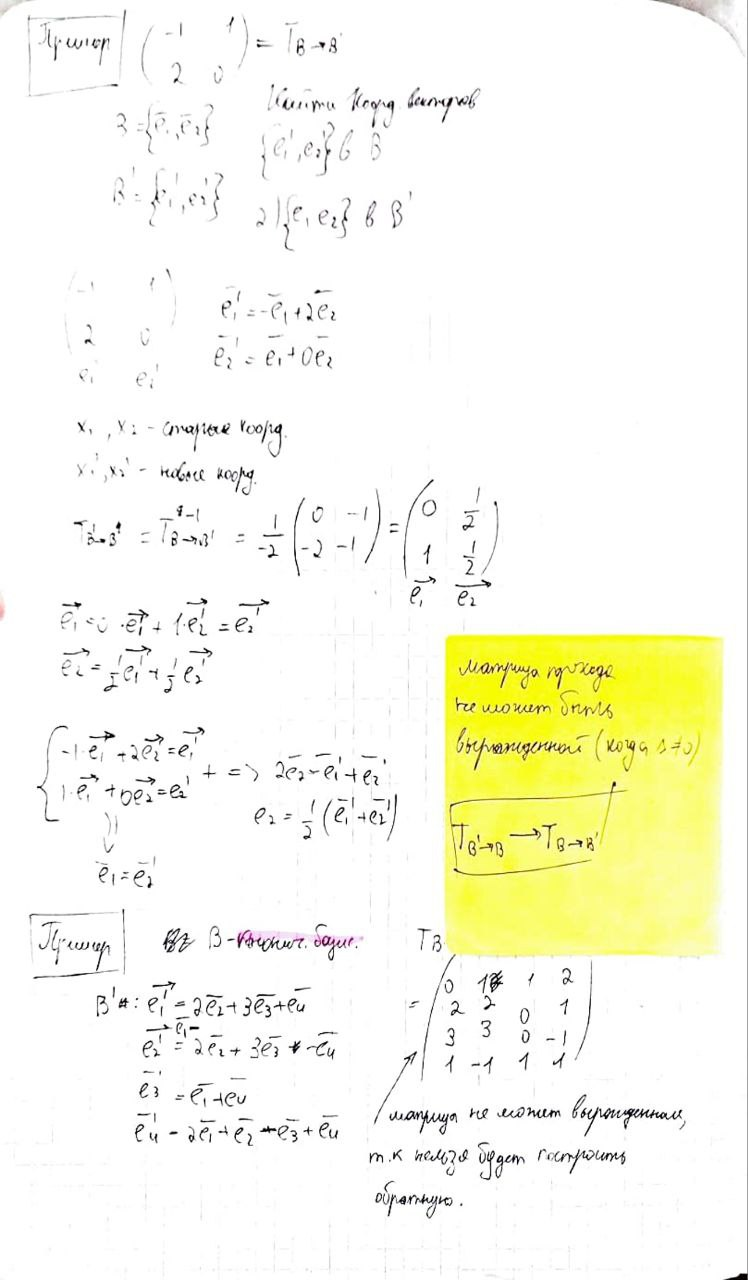 Пример ( -1 1 ; 2 0 ) = T B→B'
Найти коорд. векторов
B = {e̅₁, e̅₂}
{e̅₁', e₂'} в B
B' = {e̅₁', e̅₂'}
2) {e₁ e₂} в B'
( -1 1 ; 2 0 )
e₁' e₂'
e̅₁' = -e̅₁ + 2e̅₂
e̅₂' = e̅₁ + 0e̅₂
x₁, x₂ - старые коорд.
x₁', x₂' - новые коорд.
= T⁻¹ B→B' = 1/-2 ( 0 -1 ; -2 -1 ) = ( 0 1/2 ; 1 1/2 )
e₁ e₂
e₁ = 0 · e₁' + 1 · e₂' = e₂'
e₂ = 1/2 e₁' + 1/2 e₂'
{ -1 · e₁ + 2e₂ = e₁'
1 · e₁ + 0e₂ = e₂' + => 2e̅₂ = e̅₁' + e̅₂'
e₂ = 1/2 (e̅₁' + e̅₂')
⇓
e̅₁ = e̅₂'
матрица
не может быть
вырожденной (когда Δ≠0)
T B'→B → T B→B'
Пример B - базис. T B
B': e₁' = 2e̅₂ + 3e̅₃ + e̅₄
e₂' = e̅₁ - 2e̅₂ + 3e̅₃ - e̅₄
e̅₃' = e̅₁ + e̅₄
e̅₄' - 2e̅₁ + e̅₂ - e̅₃ + e̅₄
= ( 0 1 1 2
2 2 0 1
3 3 0 -1
1 -1 1 1 )
матрица не может вырожденная,
т.к нельзя будет построить
обратную.